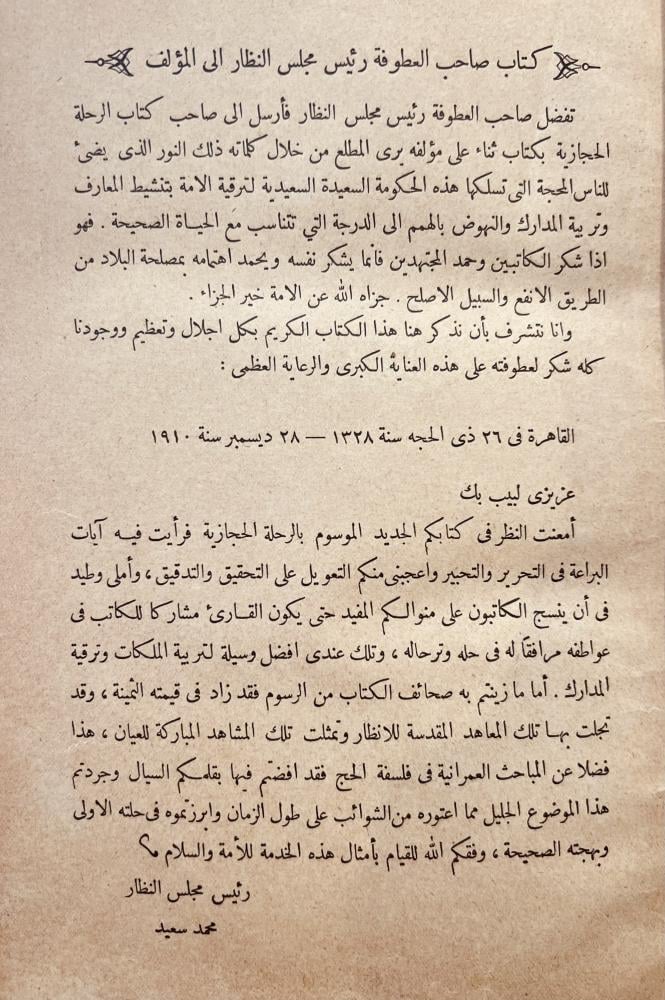 كتاب صاحب العطوفة رئيس مجلس النظار الى المؤلف
تفضل صاحب العطوفة رئيس مجلس النظار فأرسل الى صاحب كتاب الرحلة
الحجازية بكتاب ثناء على مؤلفه يرى المطلع من خلال كلماته ذلك النور الذى يضئ
للناس المحجة التى تسلكها هذه الحكومة السعيدة السعيدية لترقية الامة بتنشيط المعارف
وتربية المدارك والنهوض بالهمم الى الدرجة التي تتناسب مع الحياة الصحيحة . فهو
اذا شكر الكاتبين وحمد المجتهدين فانما يشكر نفسه ويحمد اهتمامه بمصلحة البلاد من
الطريق الانفع والسبيل الاصلح . جزاه الله عن الامة خير الجزاء .
وانا نتشرف بأن نذكر هنا هذا الكتاب الكريم بكل اجلال وتعظيم ووجودنا
كله شكر لعطوفته على هذه العناية الكبرى والرعاية العظمى :
القاهرة فى ٢٦ ذى الحجه سنة ١٣٢٨ — ٢٨ ديسمبر سنة ١٩١٠
عزيزى لبيب بك
أمعنت النظر فى كتابكم الجديد الموسوم بالرحلة الحجازية فرأيت فيه آيات
البراعة فى التحرير والتحبير واعجبنى منكم التعويل على التحقيق والتدقيق ، وأملى وطيد
فى أن ينسج الكاتبون على منوالكم المفيد حتى يكون القارئ مشاركا للكاتب فى
عواطفه مرافقاً له فى حله وترحاله ، وتلك عندى افضل وسيلة لتربية الملكات وترقية
المدارك . أما ما زينتم به صحائف الكتاب من الرسوم فقد زاد فى قيمته الثمينة ، وقد
تجلت بها تلك المعاهد المقدسة للانظار وتمثلت تلك المشاهد المباركة للعيان ، هذا
فضلا عن المباحث العمرانية فى فلسفة الحج فقد افضتم فيها بقلمكم السيال وجردتم
هذا الموضوع الجليل مما اعتوره من الشوائب على طول الزمان وابرزتموه فى حلته الاولى
وبهجته الصحيحة ، وفقكم الله للقيام بأمثال هذه الخدمة للأمة والسلام ؟
رئيس مجلس النظار
محمد سعيد